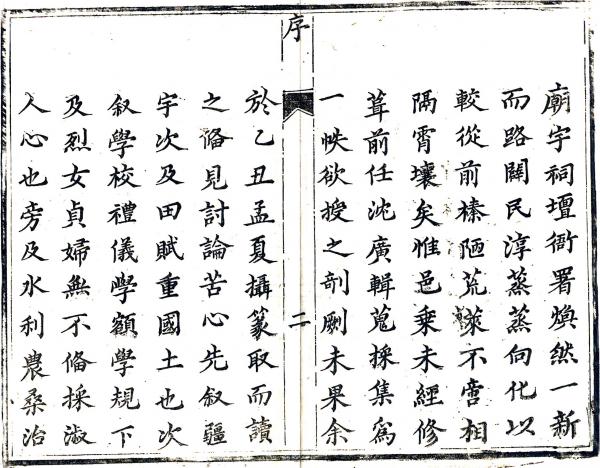 廟宇祠壇衙署煥然一新
而路闢民淳蒸蒸向化以
較從前榛陋荒萊不啻相
隔霄壤矣惟邑乗未經修
葺前任沈廣輯蒐採集為
一帙欲授之剞劂未果余
序
二
於乙丑孟夏攝篆取而讀
之偹見討論苦心先叙疆
宇次及田賦重國土也次
叙學校禮儀學額學規下
及烈女貞婦無不偹採淑
人心也旁及水利農桑治